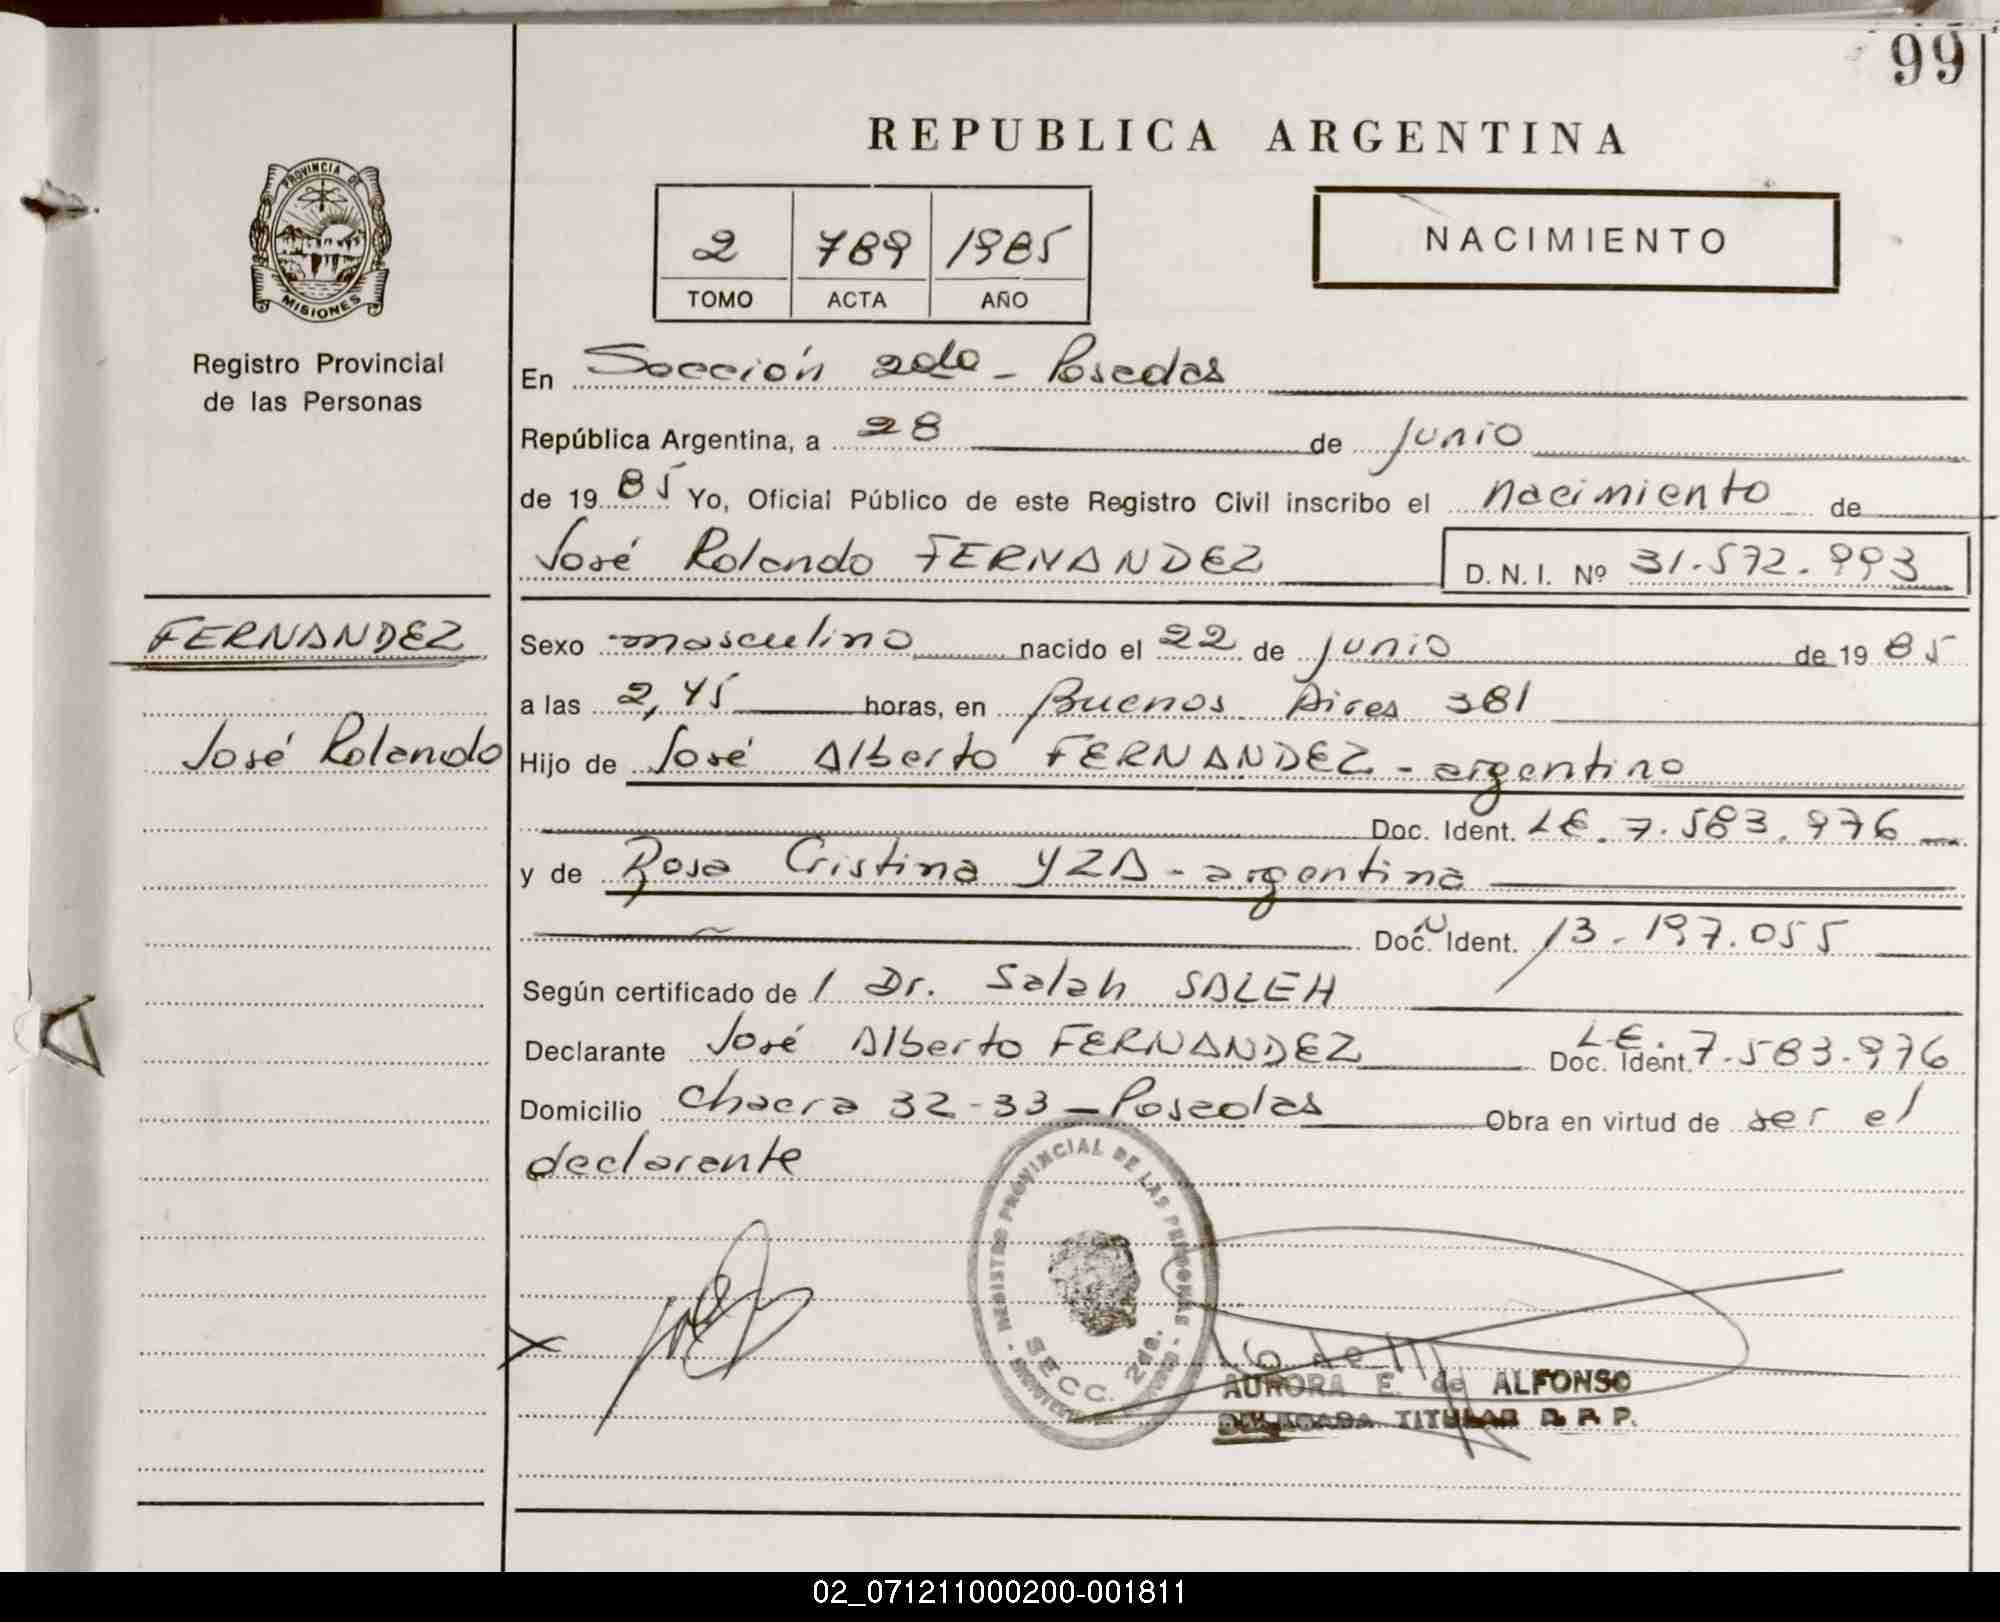 99
REPUBLICA ARGENTINA
PROVINCIA DE
MISIONES
Registro Provincial
de las Personas
2 789 1985
TOMO ACTA AÑO
NACIMIENTO
En Sección 2da - Posadas
República Argentina, a 28 de Junio
de 19 85 Yo, Oficial Público de este Registro Civil inscribo el nacimiento de
José Rolando FERNANDEZ D. N. I. Nº 31.572.993
FERNANDEZ
José Rolando
Sexo masculino nacido el 22 de Junio de 19 85
a las 2,45 horas, en Buenos Aires 381
Hijo de José Alberto FERNANDEZ - argentino
Doc. Ident. LE. 7.583.976
y de Rosa Cristina YZA - argentina
Doc. Ident. 13.197.055
Según certificado de Dr. Salah SALEH
Declarante José Alberto FERNANDEZ Doc. Ident. L.E. 7.583.976
Domicilio Chacra 32-33 - Posadas Obra en virtud de ser el
declarante
REGISTRO PROVINCIAL DE LAS PERSONAS
SECC. 2da.
AURORA E. de ALFONSO
DELEGADA TITULAR R. P. P.
02_071211000200-001811